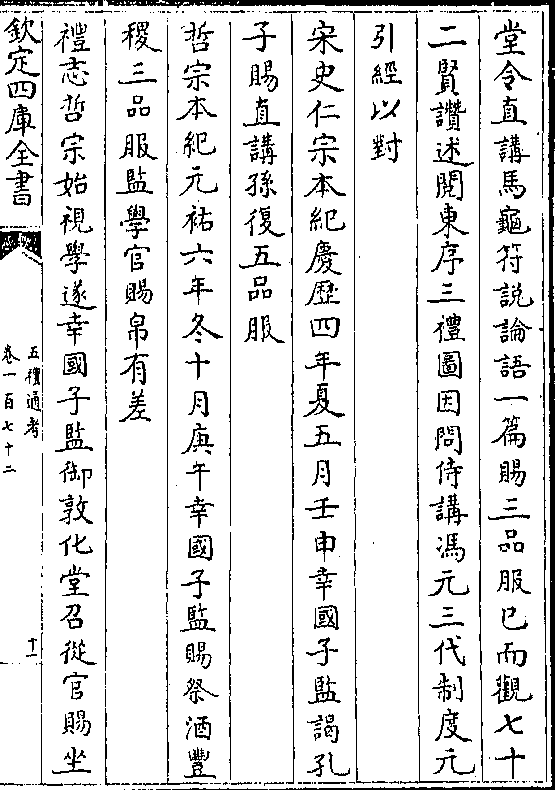 堂令直講馬龜符説論語一篇賜三品服已而觀七十
二賢讚述閱東序三禮圖因問侍講馮元三代制度元
引經以對
宋史仁宗本紀慶歴四年夏五月壬申幸國子監謁孔
子賜直講孫復五品服
哲宗本紀元祐六年冬十月庚午幸國子監賜祭酒豐
稷三品服監學官賜帛有差
禮志哲宗始視學遂幸國子監御敦化堂召從官賜坐
欽定四庫全書
五禮通考
卷一百七十二
十一